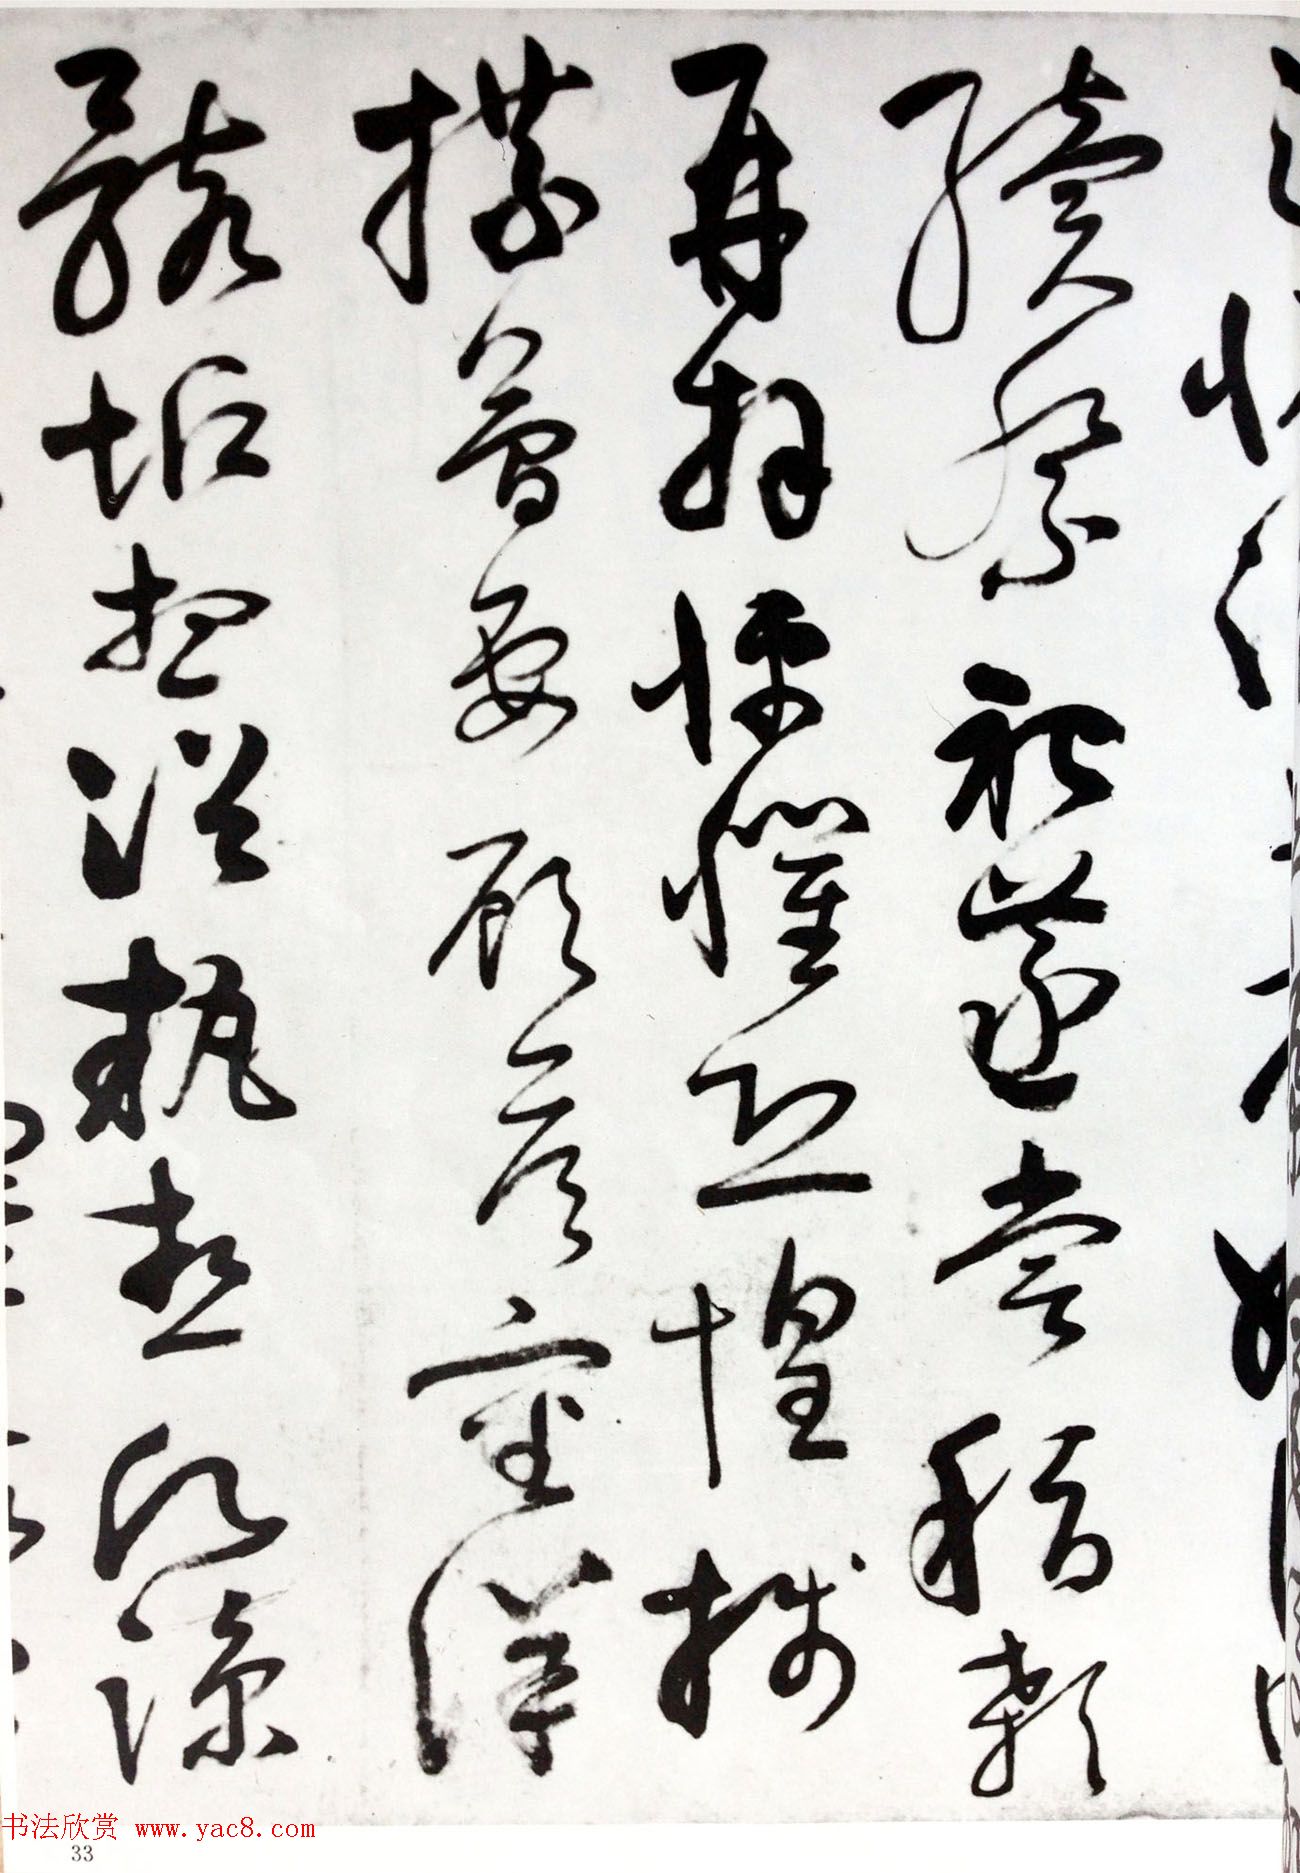 續祭祀蒸嘗稽顙
再拜悚懼恐惶牋
牒簡要顧答審詳
骸垢想浴執熱願涼
书法欣赏 www.yac8.com
33